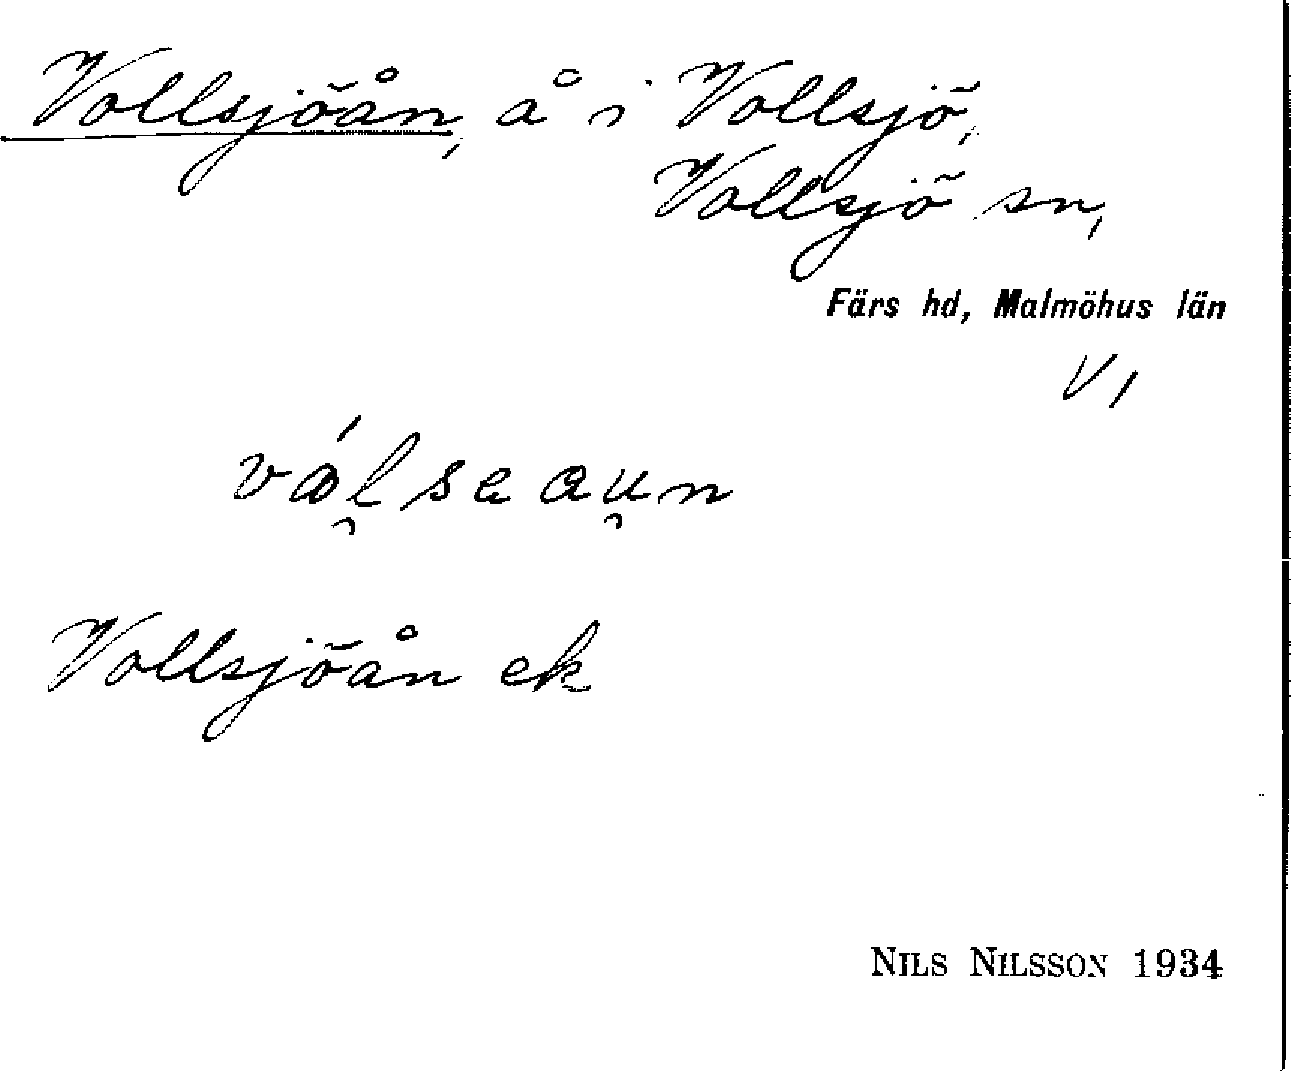 Vollsjöån, å i Vollsjö,
Vollsjö sn,
Färs hd, Malmöhus län
Vollsjöån ek
NILS NILSSON 1934